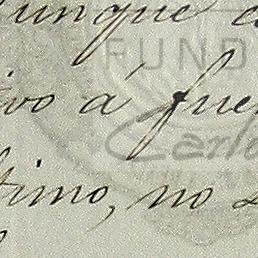 unque
FUND
vo á fue
Carl
timo, no